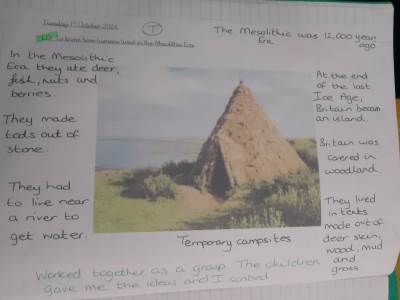 Tuesday 1st October 2024
T
LO: To know how humans lived in the Mesolithic Era
The Mesolithic was 12,000 year
Era ago
In the Mesolithic
Era they ate deer,
fish, nuts and
berries.
They made
tools out of
stone.
They had
to live near
a river to
get water.
At the end
of the last
Ice Age,
Britain becam
an island.
Britain was
covered in
woodland.
They lived
in tents
made out of
deer skin,
wood, mud
and
grass
Temporary campsites
Worked together as a group. The children
gave me the ideas and I scribed.